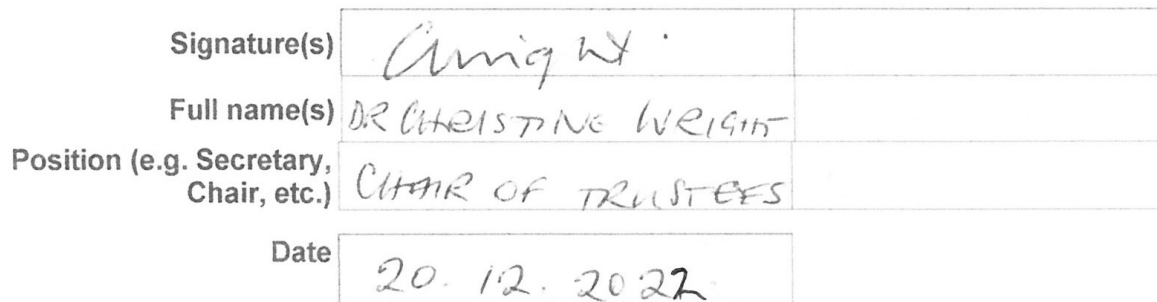 Signature(s) CWright.
Full name(s) DR CHRISTINE WRIGHT
Position (e.g. Secretary,
Chair, etc.) CHAIR OF TRUSTEES
Date 20.12.2022